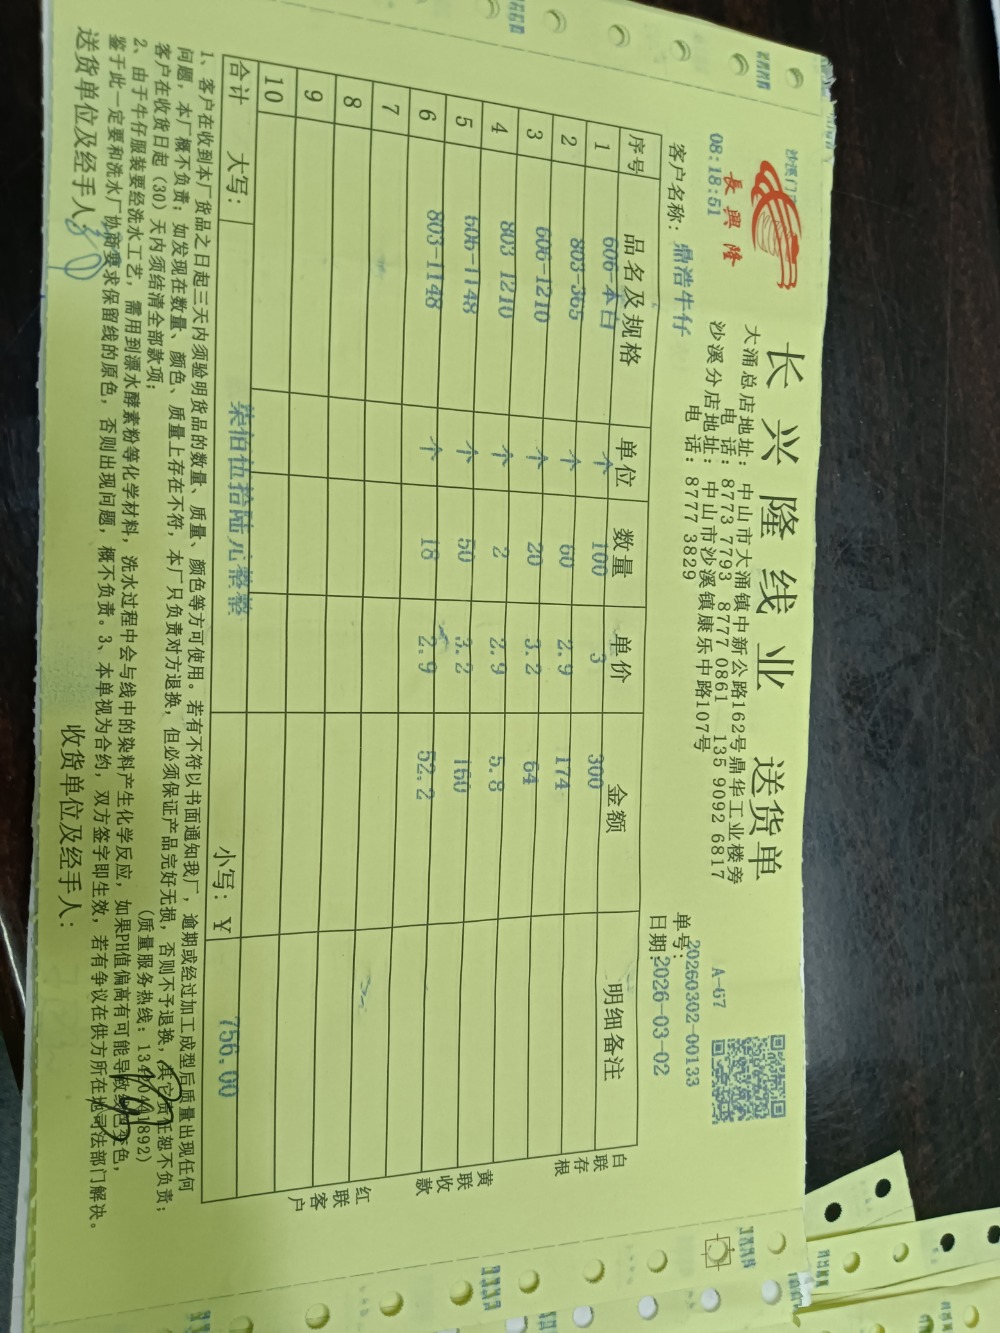 長興隆
长兴隆线业 送货单
大涌总店地址：中山市大涌镇中新公路162号鼎华工业楼旁
电话：8773 7793 8777 0861 135 9092 6817
沙溪分店地址：中山市沙溪镇康乐中路107号
电话：8777 3829
08:18:51
A-67
单号:20260302-00133
客户名称：鼎浩牛仔 日期:2026-03-02
序号 品名及规格 单位 数量 单价 金额 明细备注
1 606-本白 个 100 3 300
2 803-365 个 60 2.9 174
3 606-1210 个 20 3.2 64
4 803 1210 个 2 2.9 5.8
5 606-1148 个 50 3.2 160
6 803-1148 个 18 2.9 52.2
7
8
9
10
合计 大写：柒佰伍拾陆元整整 小写：￥ 756.00
白联存根
黄联收款
红联客户
1、客户在收到本厂货品之日起三天内须验明货品的数量、质量、颜色等方可使用。若有不符以书面通知我厂，逾期或经过加工成型后质量出现任何
问题，本厂概不负责；如发现在数量、颜色、质量上存在不符，本厂只负责对方退换，但必须保证产品完好无损，否则不予退换，其它责任恕不负责；
客户在收货日起（30）天内须结清全部款项；
（质量服务热线：1892）
2、由于牛仔服装要经洗水工艺，需用到漂水酵素粉等化学材料，洗水过程中会与线中的染料产生化学反应，如果PH值偏高有可能导致线色变色，
鉴于此一定要和洗水厂协商要求保留线的原色，否则出现问题，概不负责。3、本单视为合约，双方签字即生效，若有争议在供方所在地司法部门解决。
送货单位及经手人： 收货单位及经手人：